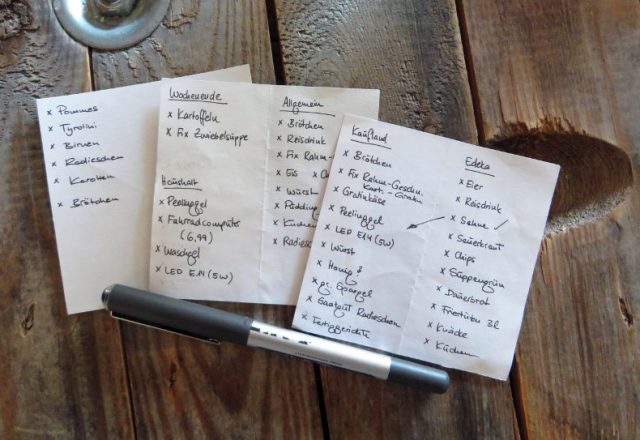 x Pommes
x Tyrolini
x Birnen
x Radieschen
x Karotten
x Brötchen
Wochenende
x Kartoffeln
x Fix Zwiebelsuppe
Haushalt
x Peelinggel
x Fahrradcomputer
(6,99)
x Waschgel
x LED E14 (5W)
Allgemein
x Brötchen
x Reisdrink
x Fix Rahm-
x Eis x
x Würst
x Pudding
x Kuchen
x Radiesc
Kaufland
x Brötchen
x Fix Rahm-Geschn.
Kart.-Gratin
x Gratinkäse
x Peelinggel
x LED E14 (5W)
x Würst
x Honig 3
x gr. Spargel
x Saatgut Radieschen
x Fertiggerichte
Edeka
x Eier
x Reisdrink
x Sahne ✓
x Sauerkraut
x Chips
x Suppengrün
x Dauerbrot
x 3l
x Knäcke
x Kuchen